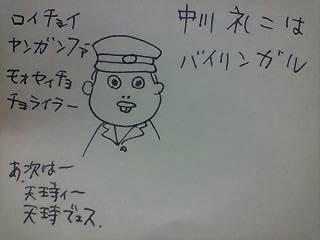 ロイチョイ
ヤンガンファ
モオセイチョ
チョライラー
中川 礼二は
バイリンガル
あ、次はー
天王寺ィー
天王寺でェス.